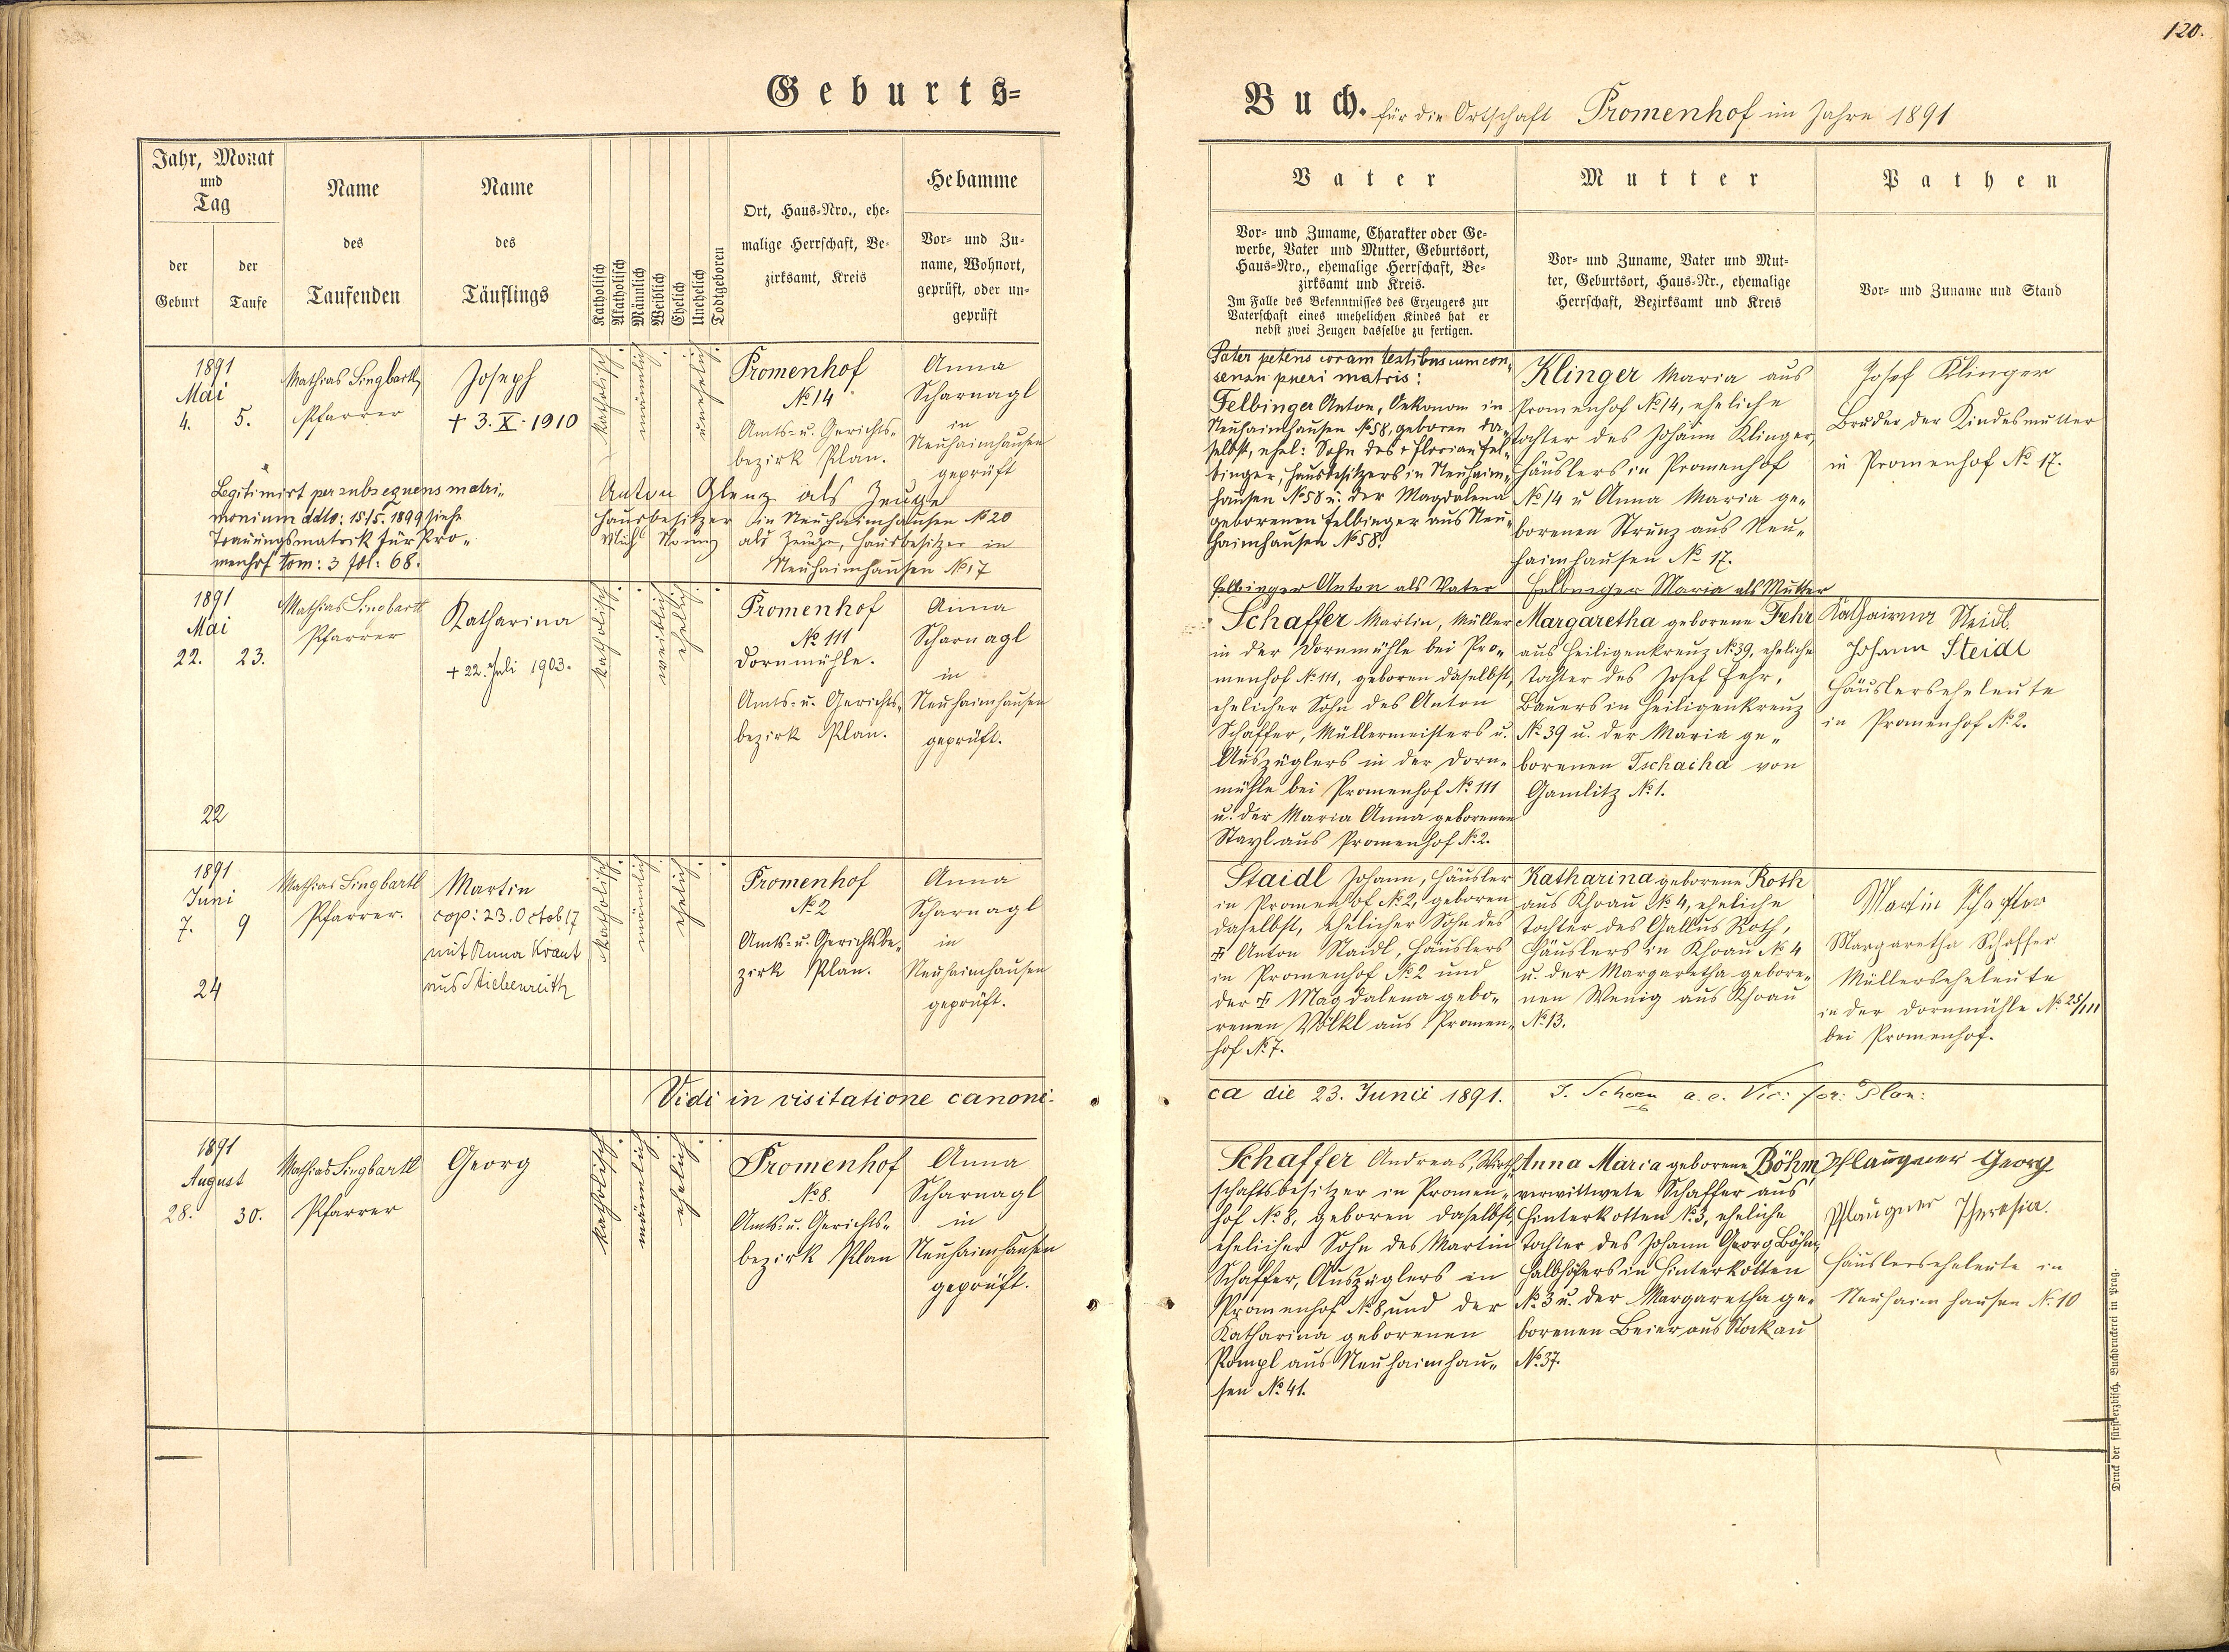 120.
Geburts=
Buch. für die Ortschaft Promenhof im Jahre 1891
Jahr, Monat
und
Tag
der
Geburt
der
Taufe
Name
des
Taufenden
Name
des
Täuflings
Katholisch
Akatholisch
Männlich
Weiblich
Ehelich
Unehelich
Todtgeboren
Ort, Haus=Nro., ehe=
malige Herrschaft, Be=
zirksamt, Kreis
Hebamme
Vor= und Zu=
name, Wohnort,
geprüft, oder un=
geprüft
Vater
Vor= und Zuname, Charakter oder Ge=
werbe, Vater und Mutter, Geburtsort,
Haus=Nro., ehemalige Herrschaft, Be=
zirksamt und Kreis.
Im Falle des Bekenntnisses des Erzeugers zur
Vaterschaft eines unehelichen Kindes hat er
nebst zwei Zeugen dasselbe zu fertigen.
Mutter
Vor= und Zuname, Vater und Mut=
ter, Geburtsort, Haus=Nr., ehemalige
Herrschaft, Bezirksamt und Kreis
Pathen
Vor= und Zuname und Stand
1891
Mai
4. 5.
Mathias Singbartl,
Pfarrer
Joseph
+ 3. X. 1910
katholisch
männlich
unehelich
Promenhof
No 14
Amts= u. Gerichts=
bezirk Plan.
Anna
Scharnagl
in
Neuhaimhausen
geprüft
Legitimirt per subsequens matri„
monium ddto: 15/5. 1899 siehe
Trauungsmatrik für Pro„
menhof tom: 3 fol: 68.
Anton Glenz als Zeuge
Hausbesitzer in Neuhaimhausen No 20
als Zeuge, Hausbesitzer in
Neuhaimhausen No 17
Pater petens coram testibus cum con„
sensu pueri matris:
Felbinger Anton, Oekonom in
Neuhaimhausen No 58, geboren da„
selbst, ehel: Sohn des + Florian Fel„
binger, Hausbesitzers in Neuhaim„
hausen No 58 u. der Magdalena
geborenen Felbinger aus Neu„
haimhausen No 58.
Felbinger Anton als Vater
Klinger Maria aus
Promenhof No 14, eheliche
Tochter des Johann Klinger,
Häuslers in Promenhof
No 14 u Anna Maria ge„
borenen Strunz aus Neu„
haimhausen No 17.
Felbinger Maria als Mutter
Josef Klinger
Bruder der Kindesmutter
in Promenhof No 17.
1891
Mai
22. 23.
22
Mathias Singbartl
Pfarrer
Katharina
+ 22. Juli 1903.
katholisch
weiblich
ehelich
Promenhof
No 111
Dornmühle.
Amts= u. Gerichts„
bezirk Plan.
Anna
Scharnagl
in
Neuhaimhausen
geprüft.
Schaffer Martin, Müller
in der Dornmühle bei Pro„
menhof No 111, geboren daselbst,
ehelicher Sohn des Anton
Schaffer, Müllermeisters u.
Auszüglers in der Dorn„
mühle bei Promenhof No 111
u. der Maria Anna geborenen
Stayl aus Promenhof No 2.
Margaretha geborene Fehr
aus Heiligenkreuz No 39, eheliche
Tochter des Josef Fehr,
Bauers in Heiligenkreuz
No 39 u. der Maria ge„
borenen Tschacha von
Gamlitz No 1.
Katharina Steidl
Johann Steidl
Häuslerseheleute
in Promenhof No 2.
1891
Juni
7. 9
24
Mathias Singbartl
Pfarrer.
Martin
cop: 23. Octob 17
mit Anna Kraut
aus Stiebenreith
katholisch
männlich
ehelich
Promenhof
No 2
Amts= u. Gerichtsbe„
zirk Plan.
Anna
Scharnagl
in
Neuhaimhausen
geprüft.
Staidl Johann, Häusler
in Promenhof No 2, geboren
daselbst, ehelicher Sohn des
+ Anton Staidl, Häuslers
in Promenhof No 2 und
der + Magdalena gebo„
renen Völkl aus Promen„
hof No 7.
Katharina geborene Roth
aus Khoau No 4, eheliche
Tochter des Gallus Roth,
Häuslers in Khoau No 4
u. der Margaretha gebore„
nen Wenig aus Khoau
No 13.
Martin Schaffer
Margaretha Schaffer
Müllerseheleute
in der Dornmühle No 25/111
bei Promenhof.
Vidi in visitatione canoni=
ca die 23. Junii 1891. a. e. Vic: for: Plan:
1891
August
28. 30.
Mathias Singbartl
Pfarrer
Georg
katholisch
männlich
ehelich
Promenhof
No 8.
Amts= u. Gerichts=
bezirk Plan
Anna
Scharnagl
in
Neuhaimhausen
geprüft.
Schaffer Andreas, Wirth„
schaftsbesitzer in Promen„
hof No 8, geboren daselbst,
ehelicher Sohn des Martin
Schaffer, Auszüglers in
Promenhof No 8 und der
Katharina geborenen
Pompl aus Neuhaimhau„
sen No 41.
Anna Maria geborene Böhm,
verwittwete Schaffer aus
Hinterkotten No 3, eheliche
Tochter des Johann Georg Böhm,
Halbhöfers in Hinterkotten
No 3 u. der Margaretha ge„
borenen Beier aus Stockau
No 37.
Pflaugner Georg
Pflaugner Theresia.
Häuslerseheleute in
Neuhaimhausen No 10
Druck der fürsterzbisch. Buchdruckerei in Prag.